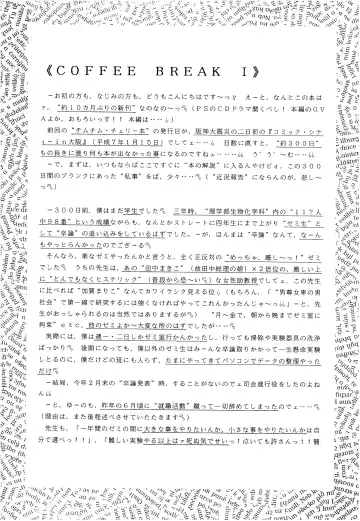 《COFFEE BREAK I》
－お初の方も、なじみの方も、どうもこんにちはです〜っ♪ えーと、なんとこの本は
ァ、“約10カ月ぶりの新刊”なのなの〜っ(PSのCDドラマ聞くべし! 本編のGV
Aよか、おもろいっす!! 本編は……)
前回の『チムチム・チェリー本』の発行日が、阪神大震災の二日前の『コミック・シティーin大阪』(平成7年1月15日)でしてェ……。日数に直すと、“約300日”
もの長きに渡り何も本が出なかった事になるのですねェ………。 う゛う゛〜む……。
－で、まずは、いつもならばここですぐに“本の解説”に入るんやけどォ、この300
日間のブランクにあった“私事”をば、少々……。 (近況報告)にならんのが、悲し〜
っ)
－〜300日前、僕はまだ学生でした。三年時、“理学部生物化学科”内の“117人
中98番”という成績ながらも、なんとかストレートに四年生にまで上がり“ゼミ生”と
して“卒論”の追い込みをしているはずでした。－が、ほんまは“卒論”なんて、なーん
もやっとらんかったのでござーる。
そんなら、楽なゼミやったんかと言うと、全く正反対の“めっちゃ、厳し〜っ!”ゼミ
でした。うちの先生は、あの“田中まきこ”(故田中総理の娘)×2倍位の、厳しい上
に“とんでもなくヒステリック”(普段から恐〜い)な女教授でしてェ。この先生
に比べれば“加賀まりこ”なんかカワイラシク見える位、(もちろん、『“男尊女卑の男
社会”で第一線で研究するには強くなければやってこれんかったんじゃ〜っ』－と、先
生がおっしゃられるのは当然ではありますがね) “月〜金で、朝から晩までゼミ室に
拘束”etc. 他のゼミよか〜大変な所のはずでしたが……。
実際には、僕は週一・二日しかゼミ室行かんかったし、行っても掃除や実験器具の洗浄
ばっかり。後期になっても、僕以外のゼミ生はみ〜んな卒論取りかかって一生懸命実験
しとるのに、僕だけどの班にも入らず、たまにやってきてパソコンでデータの整理やった
だけ。
－結局、今年2月末の“卒論発表”時、することがないのでェ司会進行役をしたのよねん
－と、ゆーのも、昨年の6月頃に“就職活動”蹴って一切辞めてしまったのでェ……。
(理由は、また後程述べさせていただきます)
先生も、「一年間のゼミの間に大きな事をやりたいんか、小さな事をやりたいんかは自
分で選べっ!!」、「難しい実験やる以上はァ死ぬ気でせいっ!泣いても許さんっ!!簡